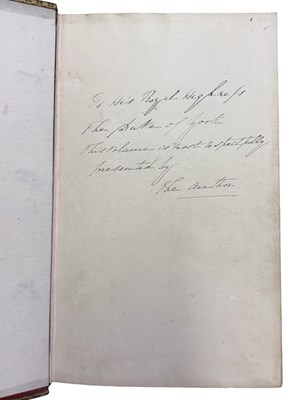 To His Royal Highness
The Duke of York
This volume is most respectfully
presented by
The Author